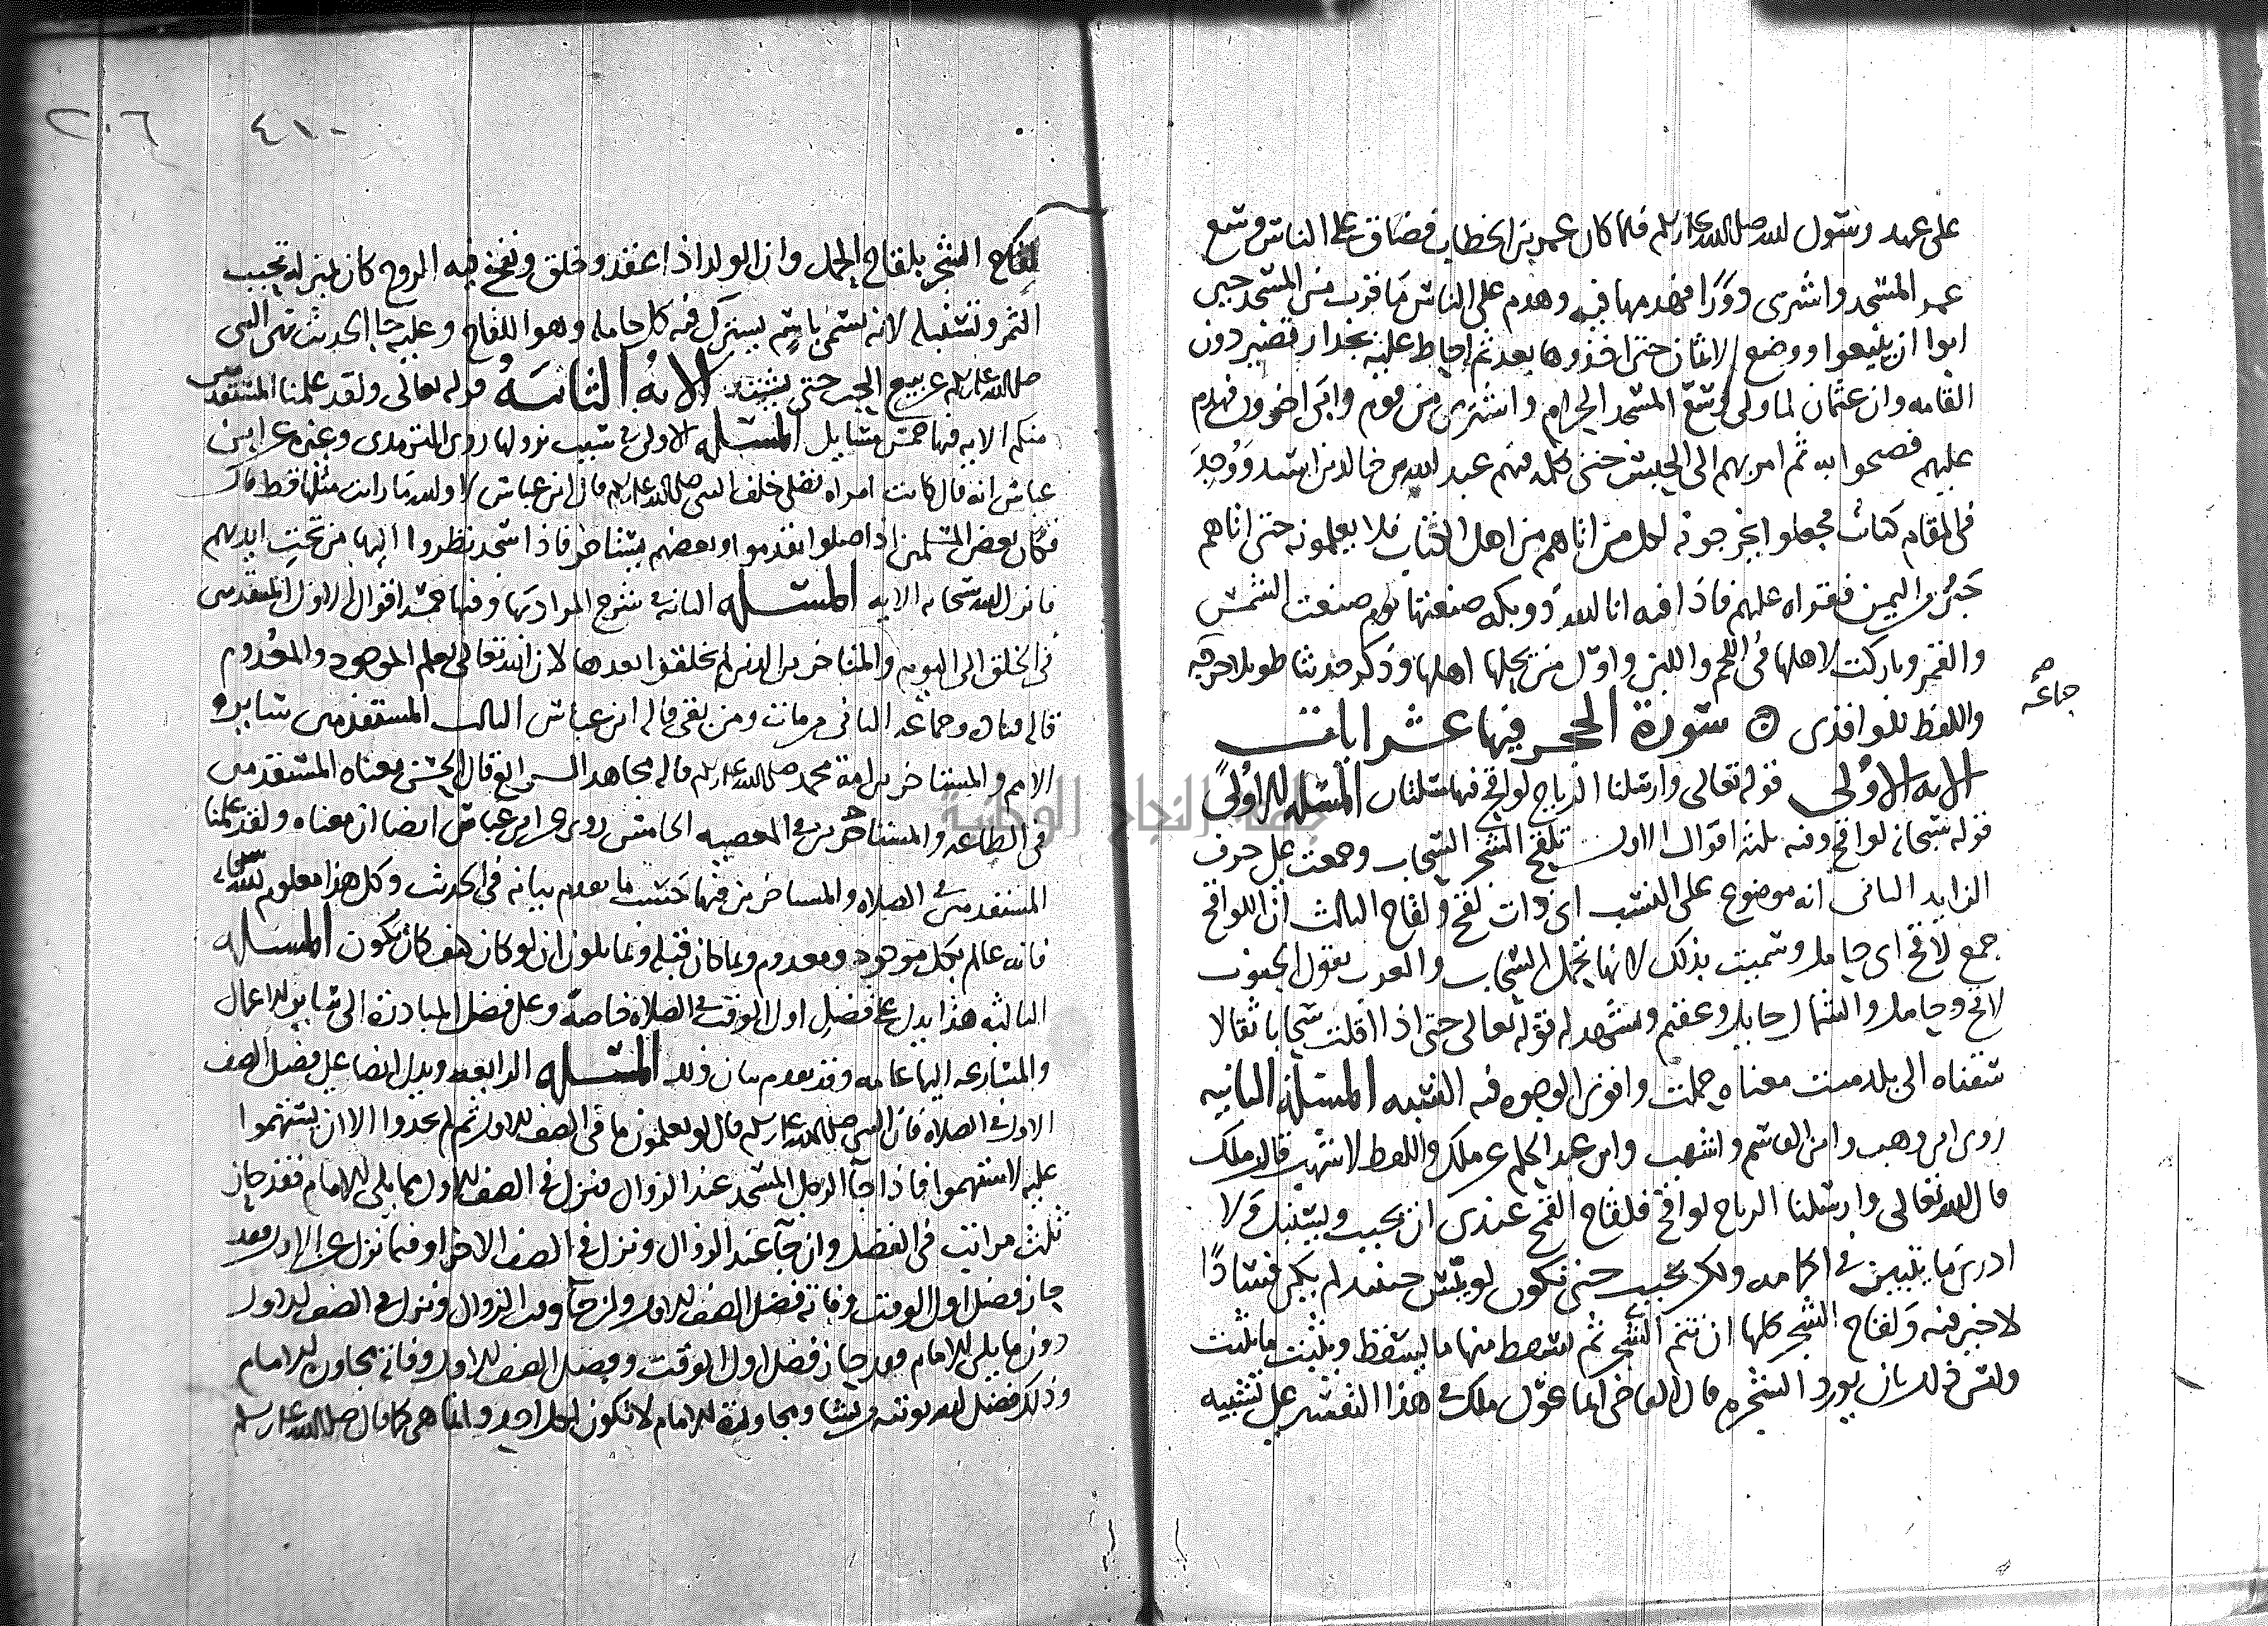 على عهد رسول الله صلى الله عليه وسلم فلما كان عمر بن الخطاب فضاق على الناس وسع
عمر المسجد واشترى دورا فهدمها فيه وهدم على الناس ما قرب من المسجد حين
ابوا ان يبيعوا ووضع الاثمان حتى اخذوها بعد ثم احاط عليه بجدار قصير دون
القامه وان عثمان لما ولى وسع المسجد الحرام واشترى من قوم وابى اخرون فهدم
عليهم فصحوا به ثم امر بهم الى الحبس حتى كلمه فيهم عبد الله بن خالد بن اسد ووجد
فى المقام كتاب فجعلوا يخرجونه لكل من اتاهم من اهل الكتاب فلا يعلمونه حتى اتاهم
حبر من اليمن فقراه عليهم فاذا فيه انا الله ذو بكه صنعتها يوم صنعت الشمس
والقمر وباركت لاهلها فى اللحم واللبن واول من يحلها اهلها وذكر حديثا طويلا خرجه
جماعة
واللفظ للواقدى سورة الحجر فيها عشر ايات
الايه الاولى قوله تعالى وارسلنا الرياح لواقح فيها مسلتان المسله الاولى
قوله سبحانه لواقح وفيه ثلثه اقوال الاول تلقح الشجر السحاب وجمعت على حرف
الزايد الثانى انه موضوع على النسب اى ذات لقح ولقاح الثالث ان اللواقح
جمع لاقح اى حامل وسميت بذلك لانها تحمل السحاب والعرب تقول الجنوب
لاقح وحامل والشمال حايل وعقيم ويشهد له قوله تعالى حتى اذا اقلت سحابا ثقالا
سقناه الى بلد ميت معناه حملت واقوى الوجوه فيه النسبه المسله الثانيه
روى ابن وهب وابن القاسم واشهب وابن عبد الحكم عن ملك واللفظ لاشهب قال ملك
قال الله تعالى وارسلنا الرياح لواقح فلقاح القمح عندى ان يحبب ويسنبل ولا
ادرى ما ييبس فى اكمامه ولكن يحبب حتى تكون لو يبس حينيذ لم يكن فسادا
لا خير فيه ولقاح الشجر كلها ان تثمر الشجر ثم يسقط منها ما يسقط ويثبت ما يثبت
وليس ذلك بان يورد الشجره قال القاضى انما عول ملك فى هذا التفسير على تشبيه
٤١٠
٢٠٦
لقاح الشجر بلقاح الحمل وان الولد اذا عقد وخلق ونفخ فيه الروح كان بمنزله تحبب
الثمر وتسنبله لانه يسمى باسم يشترك فيه كل حامله وهو اللقاح وعليه جا الحديث نهى النبى
صلى الله عليه وسلم عن بيع الحب حتى يشتد الايه الثانيه قوله تعالى ولقد علمنا المستقدمين
منكم الايه فيها خمس مسايل المسله الاولى فى سبب نزولها روى الترمذى وغيره عن ابن
عباس انه قال كانت امراه تصلى خلف النبى صلى الله عليه وسلم قال ابن عباس لا والله ما رايت مثلها قط قال
فكان بعض المسلمين اذا صلوا تقدموا وبعضهم يستاخر فاذا سجد نظروا اليها من تحت ايديهم
فانزل الله سبحانه الايه المسله الثانيه فى شرح المراد بها وفيها خمسه اقوال الاول المستقدمين
فى الخلق الى اليوم والمتاخرين الذين لم يخلقوا بعدها لان الله تعالى يعلم الموجود والمعدوم
قاله قتاده وجماعه الثانى من مات ومن بقى قاله ابن عباس الثالث المستقدمين ساير
الامم والمستاخرين امة محمد صلى الله عليه وسلم قاله مجاهد الرابع قال الحسن معناه المستقدمين
فى الطاعه والمستاخرين فى المعصيه الخامس روى عن ابن عباس ايضا ان معناه ولقد علمنا
المستقدمين فى الصلاه والمستاخرين فيها حسب ما تقدم بيانه فى الحديث وكل هذا معلوم لله سبحانه
فانه عالم بكل موجود ومعدوم وبما كان قبله وبما يكون ان لو كان كيف كان يكون المسله
الثالثه هذا يدل على فضل اول الوقت فى الصلاة خاصة وعلى فضل المبادرة الى ساير الاعمال
والمسارعه اليها عامه وقد تقدم بيان ذلك المسله الرابعه ويدل ايضا على فضل الصف
الاول فى الصلاه قال النبى صلى الله عليه وسلم قال لو يعلمون ما فى الصف الاول ثم لم يجدوا الا ان يستهموا
عليه لاستهموا فاذا جآ الرجل المسجد عند الزوال فنزل فى الصف الاول مما يلى الامام فقد حاز
ثلث مراتب فى الفضل وان جآ عند الزوال ونزل فى الصف الاخر او فيما نزل عن الاول فقد
حاز فضل اول الوقت وفاته فضل الصف الاول وان جآ وقت الزوال ونزل فى الصف الاول
دون ما يلى الامام فقد حاز فضل اول الوقت وفضل الصف الاول وفاته مجاورة الامام
وذلك فضل الله يوتيه من يشا ومجاورة الامام لا تكون لكل احد وانما هى كما قال صلى الله عليه وسلم
جامعة النجاح الوطنية